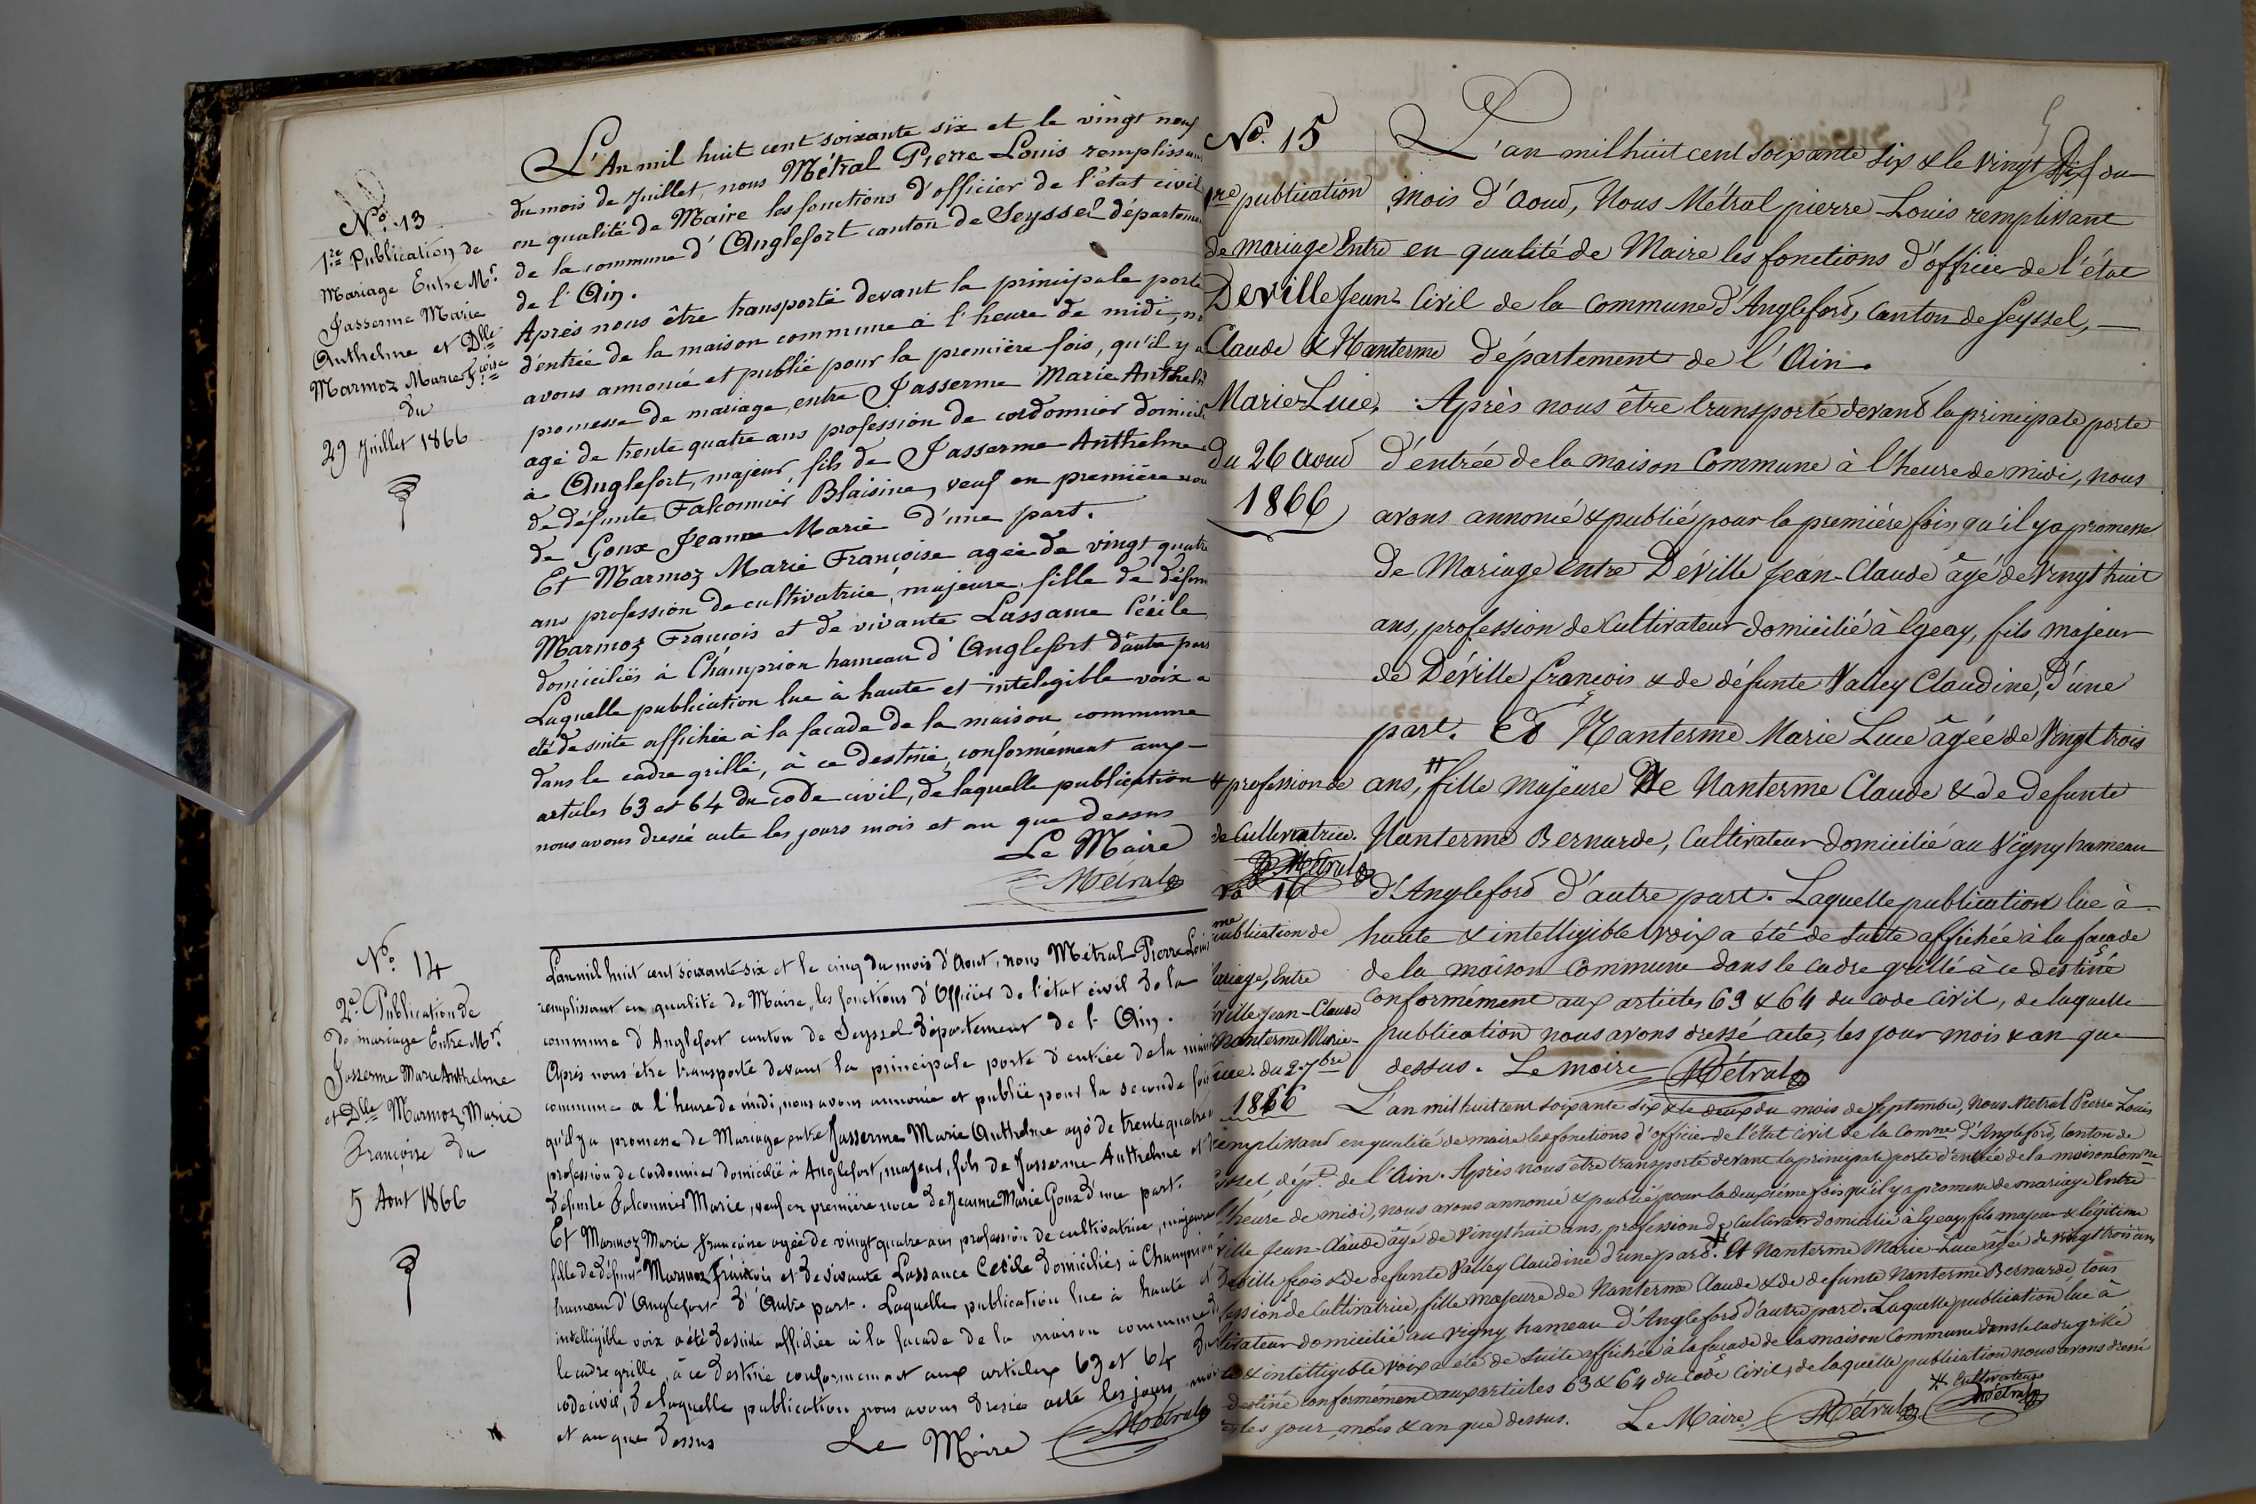 Nº. 13
1re Publication de
Mariage Entre Mr.
Jasserme Marie
Anthelme et Dlle
Marmoz Marie Fçoise
du
29 Juillet 1866
L'An mil huit cent soixante six et le vingt neuf
du mois de Juillet, nous Métral Pierre Louis remplissant
en qualité de Maire les fonctions d'officier de l'état civil
de la commune d'Anglefort canton de Seyssel départeme
de l'Ain.
Après nous être transporté devant la principale porte
d'entrée de la maison commune à l'heure de midi, n
avons annoncé et publié pour la première fois, qu'il y a
promesse de mariage, entre Jasserme Marie Anthel
agé de trente quatre ans profession de cordonnier domicil
à Anglefort, majeur, fils de Jasserme Anthelme
de défunte Falconnier Blaisine, veuf en première no
de Goux Jeanne Marie d'une part.
Et Marmoz Marie Françoise agée de vingt quatre
ans profession de cultivatrice, majeure, fille de défun
Marmoz François et de vivante Lassame Cécile
domiciliés à Champrion hameau d'Anglefort d'autre part
Laquelle publication lue à haute et inteligible voix a
été de suite affichée à la façade de la maison commune
dans le cadre grillé, à ce destiné, conformément aux
articles 63 et 64 du code civil, de laquelle publication
nous avons dressé acte les jours mois et an que dessus
Le Maire
Métral
Nº. 14
2e. Publication de
de mariage Entre Mr.
Jasserme Marie Anthelme
et Dlle Marmoz Marie
Françoise du
5 Aout 1866
L'an mil huit cent soixante six et le cinq du mois d'Aout, nous Métral Pierre Louis
remplissant en qualité de Maire, les fonctions d'Officier de l'état civil de la
commune d'Anglefort canton de Seyssel département de l'Ain.
Après nous être transporté devant la principale porte d'entrée de la mai
commune a l'heure de midi, nous avons annoncé et publié pour la seconde fois
qu'il y a promesse de Mariage entre Jasserme Marie Anthelme agé de trente quatre
profession de Cordonnier domicilié à Anglefort, majeur, fils de Jasserme Anthelme et
défunte Falconnier Marie, veuf en première noce de Jeanne Marie Goux d'une part.
Et Marmoz Marie Françoise agée de vingt quatre ans profession de cultivatrice, majeure
fille de défunt Marmoz François et de vivante Lassance Cécile domiciliés à Champrion
hameau d'Anglefort d'Autre part. Laquelle publication lue à haute et
intelligible voix a été de suite affichée à la façade de la maison commune d
le cadre grille, à ce destiné conformément aux articles 63 et 64 du
code civil, de laquelle publication nous avons dressé acte les jours moi
et an que dessus
Le Maire
Métral
Nº. 15
1re publication
de mariage Entre
Deville Jean-
Claude & Nanterme
Marie-Luce,
du 26 Aout
1866
L'an mil huit cent soixante six & le vingt Six du
mois d'Aout, Nous Métral pierre-Louis remplissant
en qualité de Maire les fonctions d'officier de l'état
Civil de la Commune d'Anglefort, Canton de Seyssel,
département de l'Ain.
Après nous être transporté devant la principale porte
d'entrée de la maison Commune à l'heure de midi, nous
avons annoncé & publié pour la première fois, qu'il y a promesse
de Mariage entre Déville Jean-Claude âgé de Vingt huit
ans, profession de Cultivateur domicilié à lgeay, fils majeur
de Déville françois & de défunte Valley Claudine, d'une
part. Et Nanterme Marie Luce âgée de Vingt trois
ans, # fille majeure De Nanterme Claude & de defunte
Nanterme Bernarde, Cultivateur domicilié au Vigny hameau
d'Anglefort d'autre part. Laquelle publication lue à
haute & intelligible voix a été de suite affichée à la façade
de la maison Commune dans le cadre grillé à ce destiné
conformément aux articles 63 & 64 du code Civil, de laquelle
publication nous avons dressé acte, les jour mois & an que
dessus. Le maire Métral
# profession de
de Cultivatrice.
Métral
Nº 16
me publication de
ariage, Entre
ville Jean-Claude
Nanterme Marie-
Luce. du 2 7bre
1866
L'an mil huit cent soixante six & le deux du mois de Septembre, Nous Métral Pierre Louis
remplissant en qualité de maire les fonctions d'officier de l'état Civil de la Comne d'Anglefort, Canton de
yssel, dépt. de l'Ain. Après nous être transporté devant la principale porte d'entrée de la maison Comne
l'heure de midi, nous avons annoncé & publié pour la deuxième fois qu'il y a promesse de mariage Entre
ville Jean-Claude âgé de Vingt huit ans, profession de Cultivateur domicilié à lgeay, fils majeur & légitime
Deville fçois & de defunte Valley Claudine d'une part. Et Nanterme Marie-Luce âgée de vingt trois ans
fession de Cultivatrice, fille majeure de Nanterme Claude & de defunte Nanterme Bernarde, tous
tivateur domicilié au Vigny hameau d'Anglefort d'autre part. Laquelle publication lue à
& intelligible voix a été de suite affichée à la façade de la maison Commune dans le cadre grillé
destiné conformément aux articles 63 & 64 du code Civil, de laquelle publication nous avons dressé
les jour, mois & an que dessus. Le Maire, Métral
# Cultivateurs
Métral